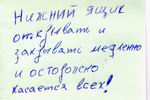 Нижний ящик
открывать и
закрывать медленно
и осторожно
касается всех!